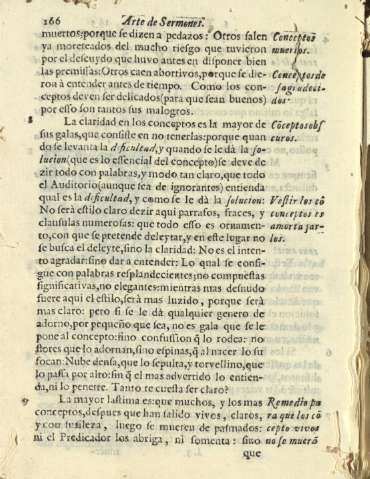 166 Arte de Sermones.
muertos: porque se dizen a pedazos: Otros salen
ya moreteados del mucho riesgo que tuvieron
por el descuydo que huvo antes en disponer bien
las premissas: Otros caen abortivos, porque se die-
ron à entender antes de tiempo. Como los con-
ceptos deven ser delicados (para que sean buenos)
por esso son tantos sus malogros.
La claridad en los conceptos es la mayor de
sus galas, que consiste en no tenerlas: porque quan
do se levanta la dificultad, y quando se le dà la so-
lucion (que es lo essencial del concepto) se deve de
zir todo con palabras, y modo tan claro, que todo
el Auditorio (aunque sea de ignorantes) entienda
qual es la dificultad, y como se le dà la solucion:
No serà estilo claro dezir aqui parrafos, fraces, y
clausulas numerosas: que todo esso es ornamen-
to, con que se pretende deleytar, y en este lugar no
se busca el deleyte, sino la claridad: No es el inten-
to agradar: sino dar a entender: Lo qual se consi-
gue con palabras resplandecientes, no compuestas
significativas, no elegantes: mientras mas desnudo
fuere aqui el estilo, serà mas luzido, porque serà
mas claro: pero si se le dà qualquier genero de
adorno, por pequeño que sea, no es gala que se le
pone al concepto: sino confussion q̃ lo rodea: no
flores que lo adornan, sino espinas, q̃ al nacer lo su
focan: Nube densa, que lo sepulta, y torvellino, que
lo passa por alto: sin q̃ el mas advertido lo entien-
da, ni lo penetre. Tanto te cuesta ser claro?
La mayor lastima es: que muchos, y los mas
conceptos, despues que han salido vivos, claros,
y con sutileza, luego se mueren de pasmados:
ni el Predicador los abriga, ni fomenta: sino
que
Conceptos
muertos.
Conceptos de
sagradeci-
dos.
Cõceptos obs
curos.
Vestir los cõ
conceptos es
amortajar-
los.
Remedio pa
ra que los cõ
cepto vivos
no se muerã